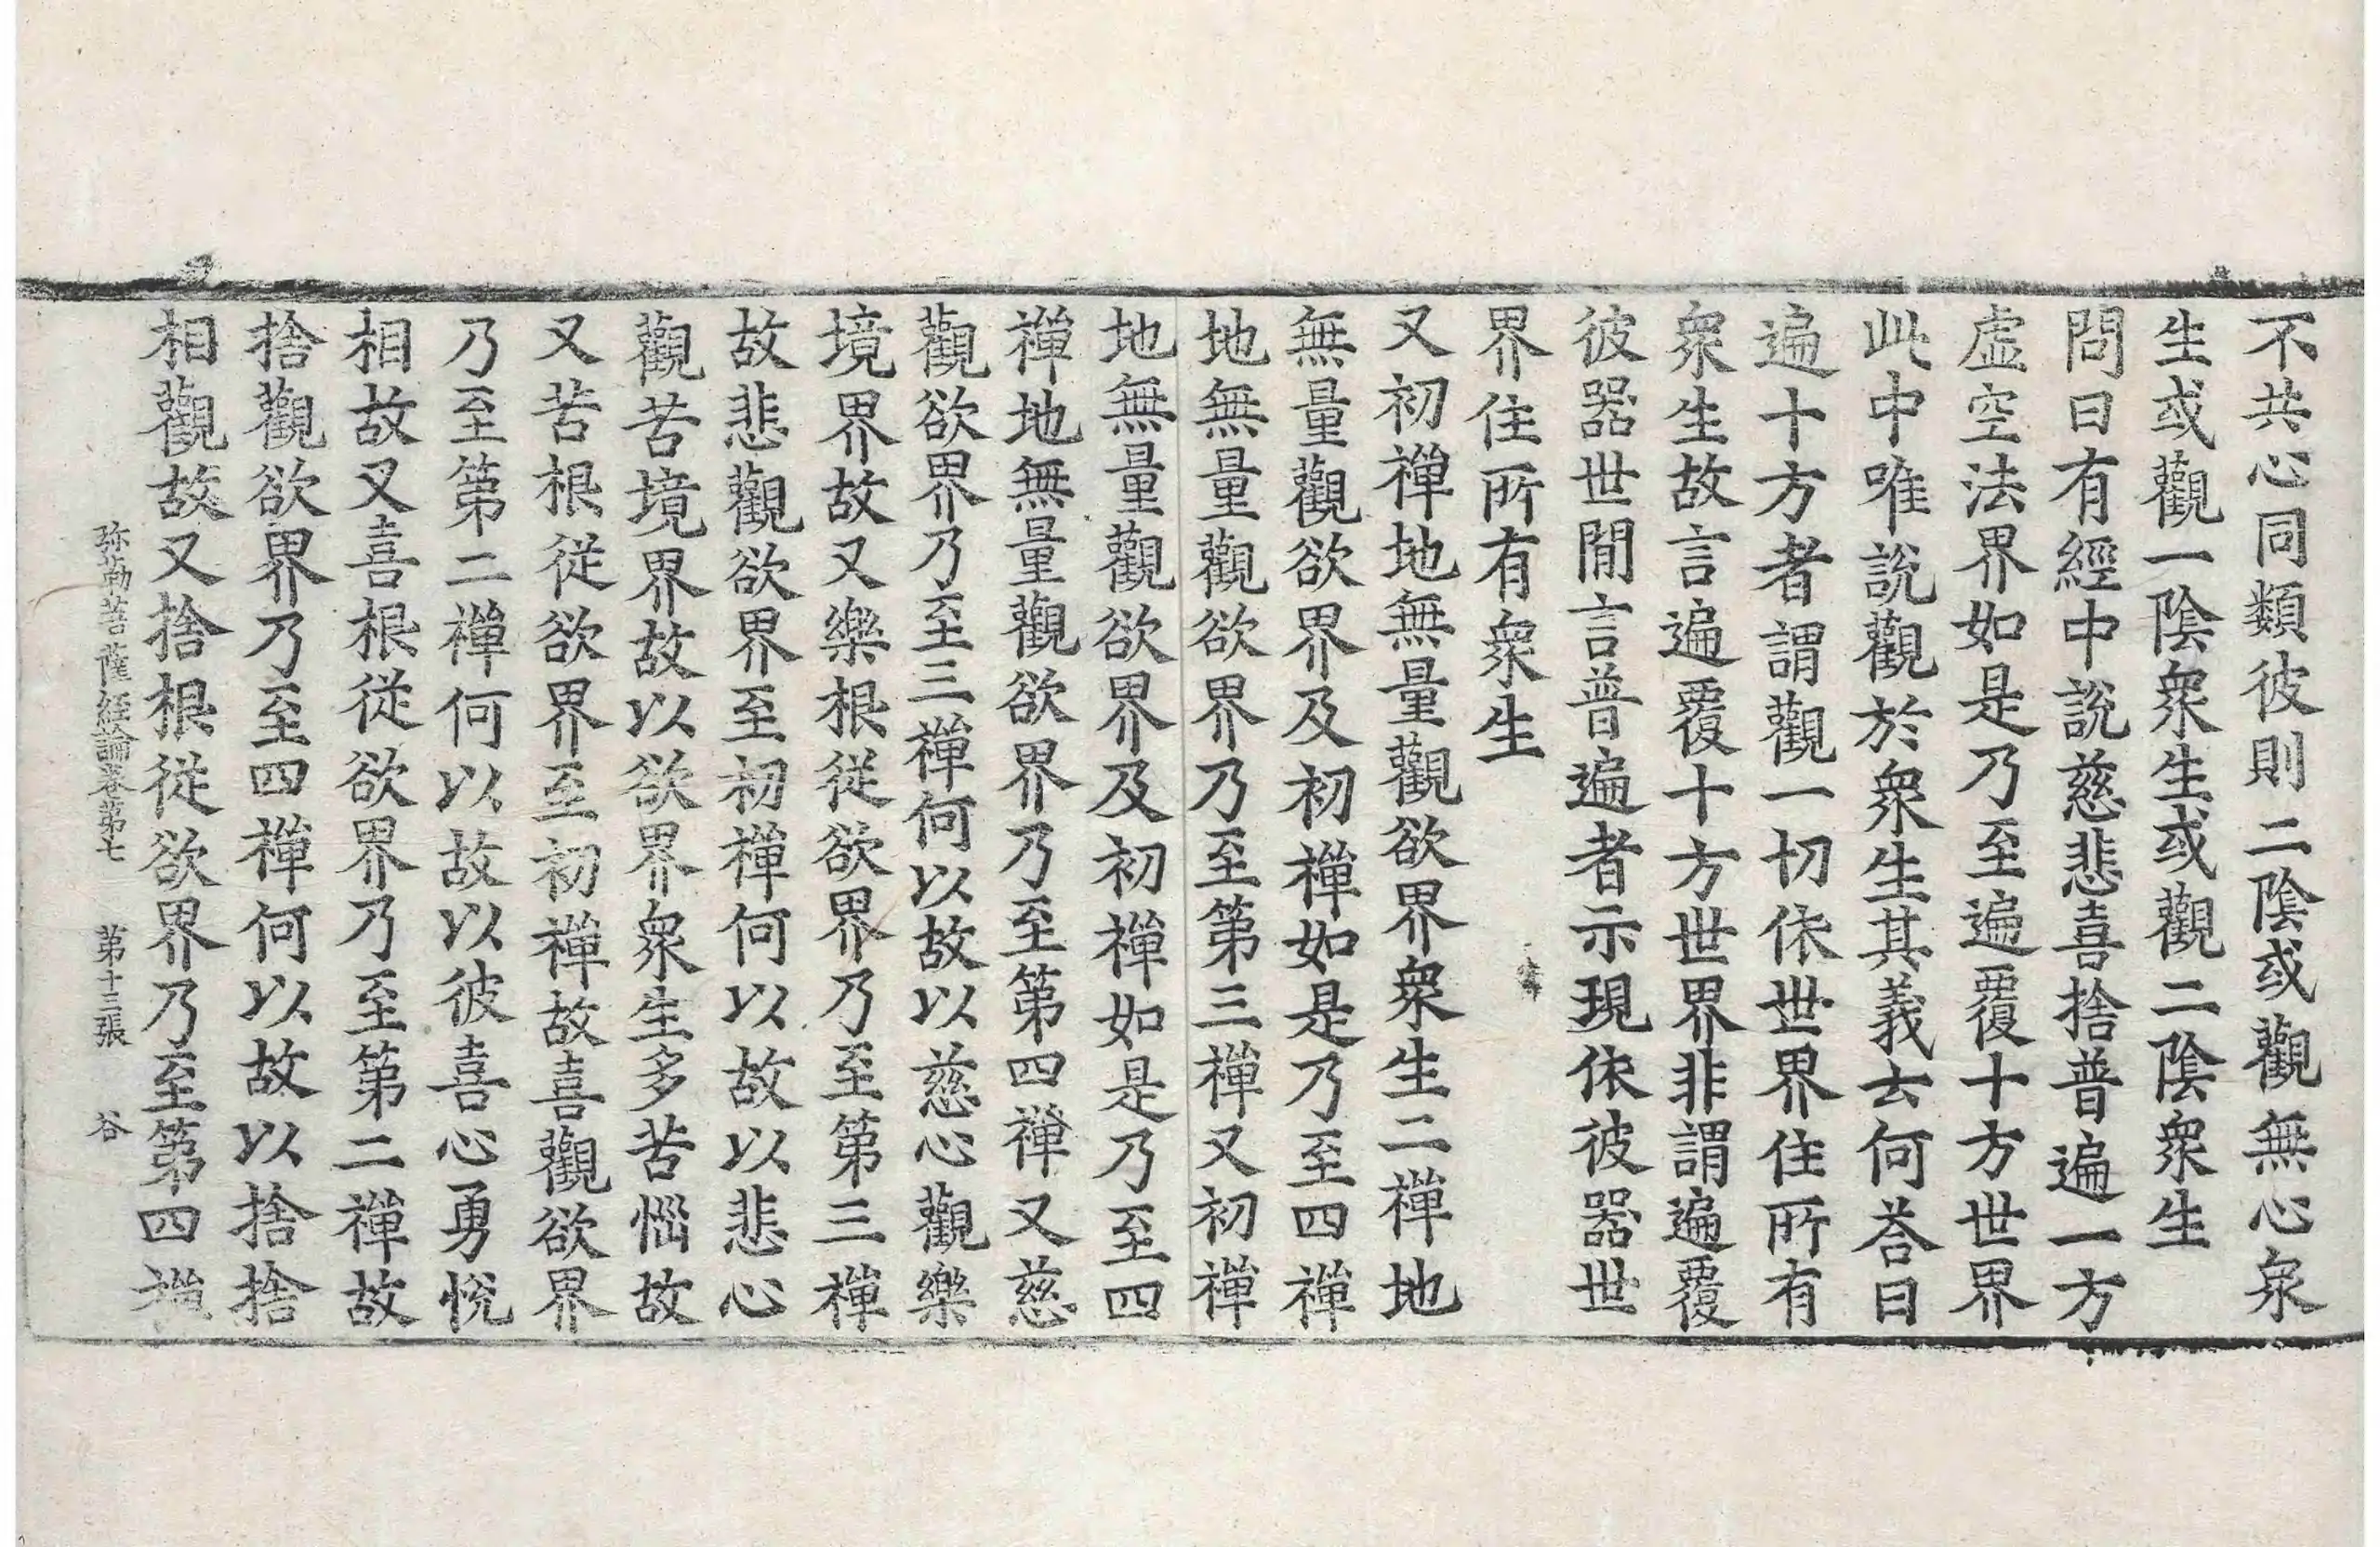 不共心同類彼則二陰或觀無心衆
生或觀一陰衆生或觀二陰衆生
問曰有經中說慈悲喜捨普遍一方
虛空法界如是乃至遍覆十方世界
此中唯說觀於衆生其義云何荅曰
遍十方者謂觀一切依世界住所有
衆生故言遍覆十方世界非謂遍覆
彼器世間言普遍者示現依彼器世
界住所有衆生
又初禪地無量觀欲界衆生二禪地
無量觀欲界及初禪如是乃至四禪
地無量觀欲界乃至第三禪又初禪
地無量觀欲界及初禪如是乃至四
禪地無量觀欲界乃至第四禪又慈
觀欲界乃至三禪何以故以慈心觀樂
境界故又樂根從欲界乃至第三禪
故悲觀欲界至初禪何以故以悲心
觀苦境界故以欲界衆生多苦惱故
又苦根從欲界至初禪故喜觀欲界
乃至第二禪何以故以彼喜心勇悅
相故又喜根從欲界乃至第二禪故
捨觀欲界乃至四禪何以故以捨捨
相觀故又捨根從欲界乃至第四禪
弥勒菩薩経論卷第七 第十三張 谷